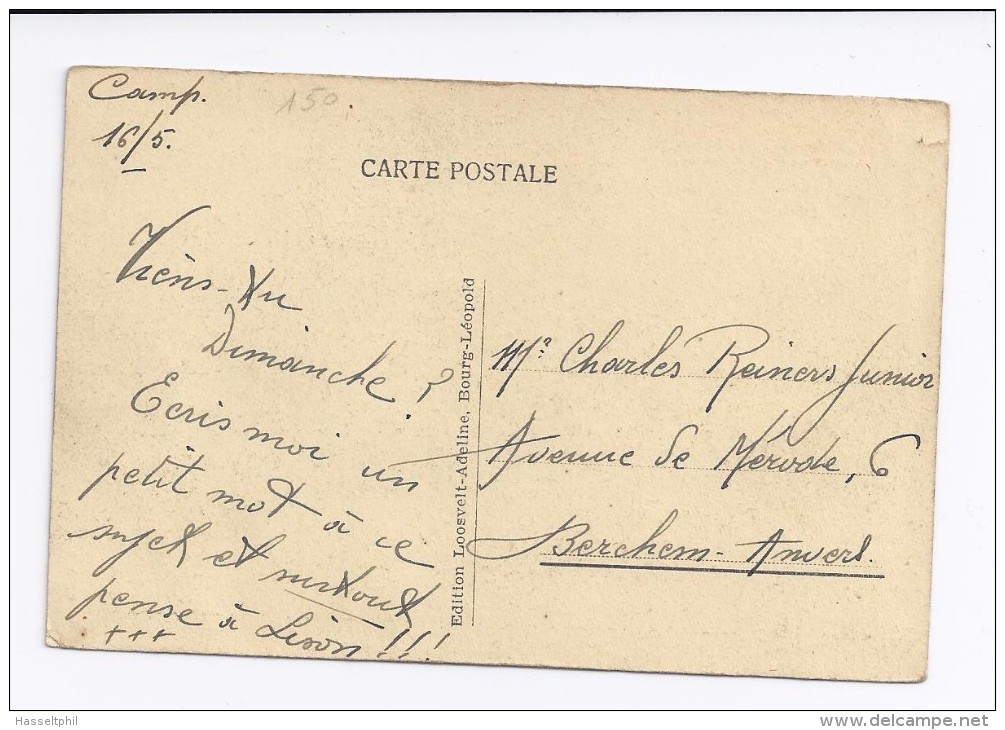 Camp.
16/5.
150
CARTE POSTALE
Viens-tu
Dimanche ?
Ecris moi un
petit mot à ce
sujet et surtout
pense à Lison !!!
+++
Edition Loosvelt-Adeline, Bourg-Léopold
Mr Charles Reiners Junior
Avenue de Mérode, 6
Berchem-Anvers.
Hasseltphil
www.delcampe.net